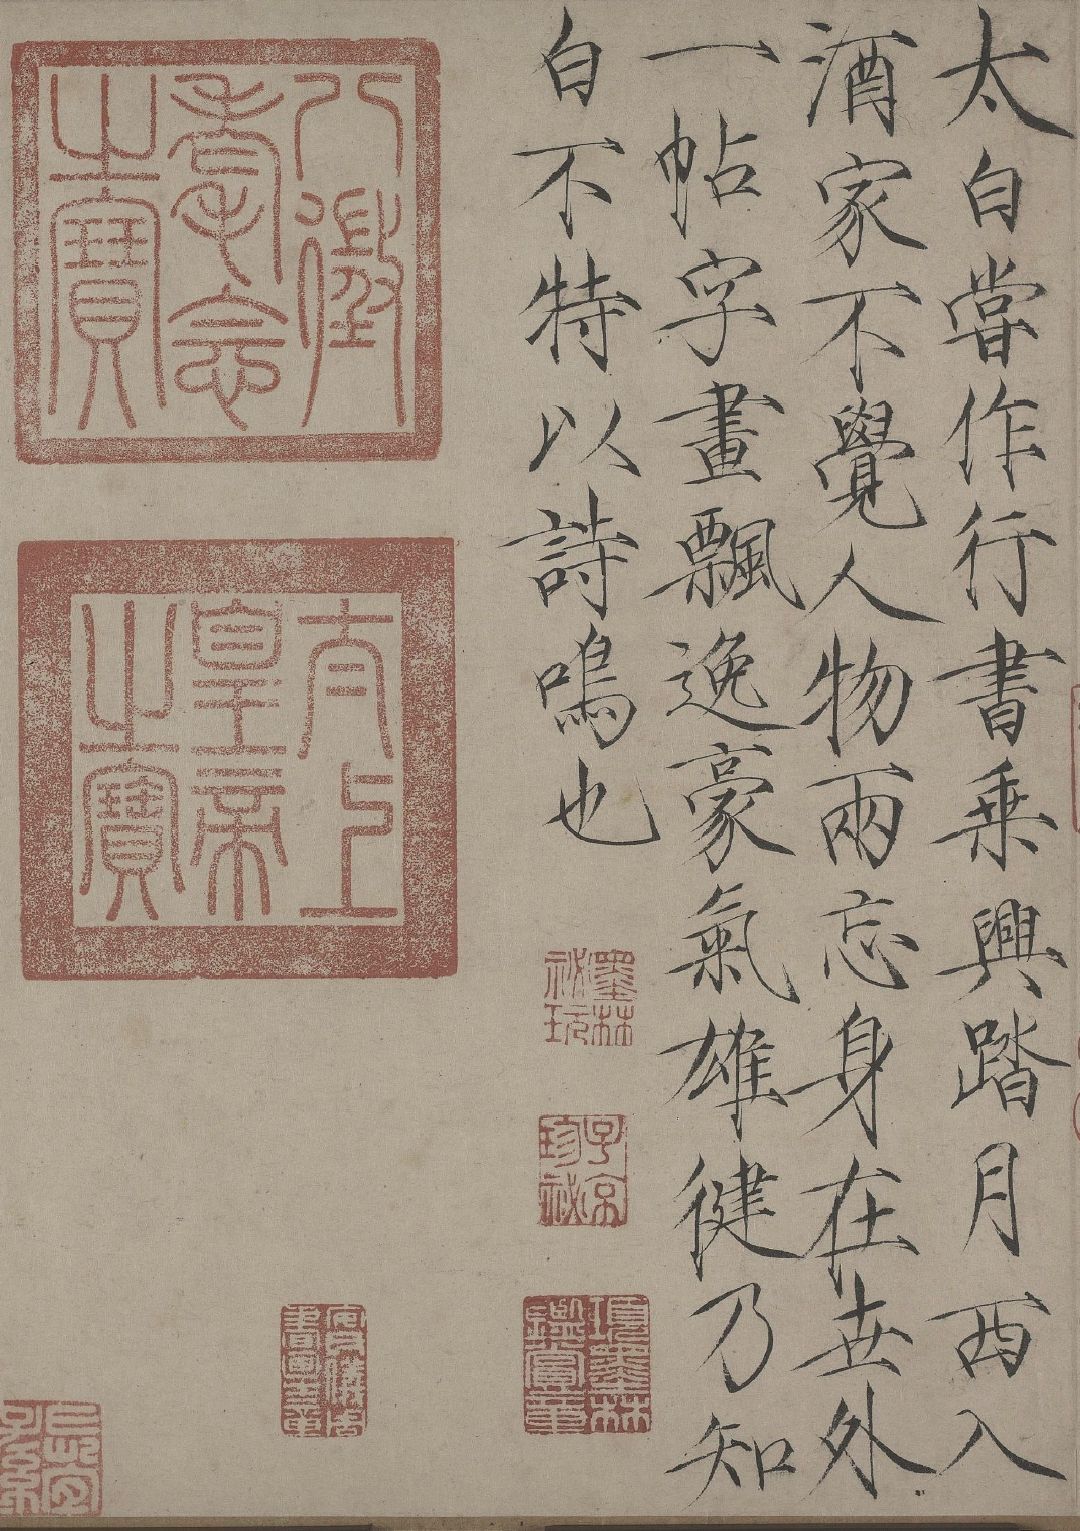 太白嘗作行書乘興踏月西入
酒家不覺人物兩忘身在世外
一帖字畫飄逸豪氣雄健乃知
白不特以詩鳴也
八徵耄念之寶
太上皇帝之寶
墨林祕玩
子京珍祕
項墨林鑑賞章
安儀周家珍藏